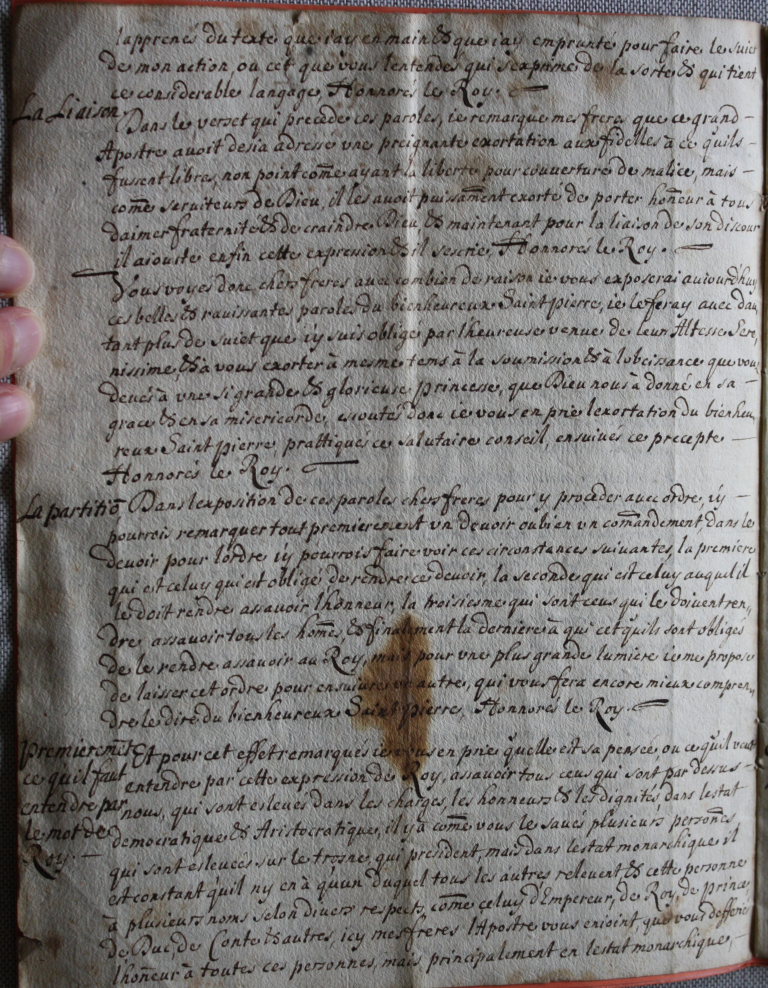 lapprenes du texte que iay en main & que iay emprunté pour faire le suiet
de mon action ou cet que vous lentendes qui sexprime de la sorte & qui tient
ce considerable langage, Honnorés le Roy.
La Liaison
Dans le verset qui precede ces paroles, ie remarque mes freres que ce grand
Apostre auoit desia adressé vne preignante exortation aux fidelles à ce quils
fussent libres, non point comẽ ayant la liberté pour couuerture de malice, mais
comẽ seruiteurs de Dieu, il les auoit puissam̃ent exorté de porter hoñeur à tous
daimer fraternité & de craindre Dieu & maintenant pour la liaison de son discour
il aiouste enfin cette expression & il sescrie, Honnorés le Roy.
Vous voyes donc, chers freres auec combien de raison ie vous exposeray auiourdhuy
ces belles & rauissantes paroles du bienheureux Saint pierre, ie le feray auec dau
tant plus de suiet que i'y suis obligé par lheureuse venue de leur Altesse Sere,
nissime, & à vous exorter à mesme tems à la soumission & à lobeissance que vou
deués à vne si grande & glorieuse princesse, que Dieu nous à donné en sa
grace & en sa misericorde, escoutés donc ie vous en prie lexortation du bienheu,
reux Saint pierre, prattiqués ce salutaire conseil, ensuiués ce precepte
Honnorés le Roy.
La partitiõ
Dans lexposition de ces paroles chers freres pour y proceder auec ordre, i'y
pourrois remarquer tout premierement vn deuoir ou bien vn com̃andement dans le
deuoir pour lordre i'y pourrois faire voir ces circonstances suiuantes, la premiere
qui est celuy qui est obligé de rendre ce deuoir, la seconde qui est celuy auquel il
le doit rendre assauoir lhonneur, la troisiesme qui sont ceux qui le doiuent ren,
dre assauoir tous les hom̃es, & finalement la derniere à qui cet quils sont obligés
de le rendre assauoir au Roy, mais pour vne plus grande lumiere ie me propose
de laisser cet ordre pour ensuiure vn autre, qui vous fera encore mieux compren,
dre le dire du bienheureux Saint pierre, Honnorés le Roy.
premieremẽt
ce quil faut
entendre par
le mot de
Roy.
Et pour cet effet remarques ie vous en prie quelle est sa pensée, ou ce quil veut
entendre par cette expression de Roy, assauoir tous ceux qui sont par dessus
nous, qui sont esleués dans les charges, les honneurs & les dignités dans lestat
democratique & Aristocratique, il y à comẽ vous le saués plusieurs persoñes
qui sont esleuees sur le trosne, qui president, mais dans lestat monarchique il
est constant quil ny en à qu'un duquel tous les autres releuent & cette personne
à plusieurs noms selon diuers respects, comẽ celuy d'Empereur, de Roy, de prince
de Duc, de Conte & autres, icy mes freres l'Apostre vous enioint que vous
lhoñeur à toutes ces personnes, mais principalement en lestat monarchique,